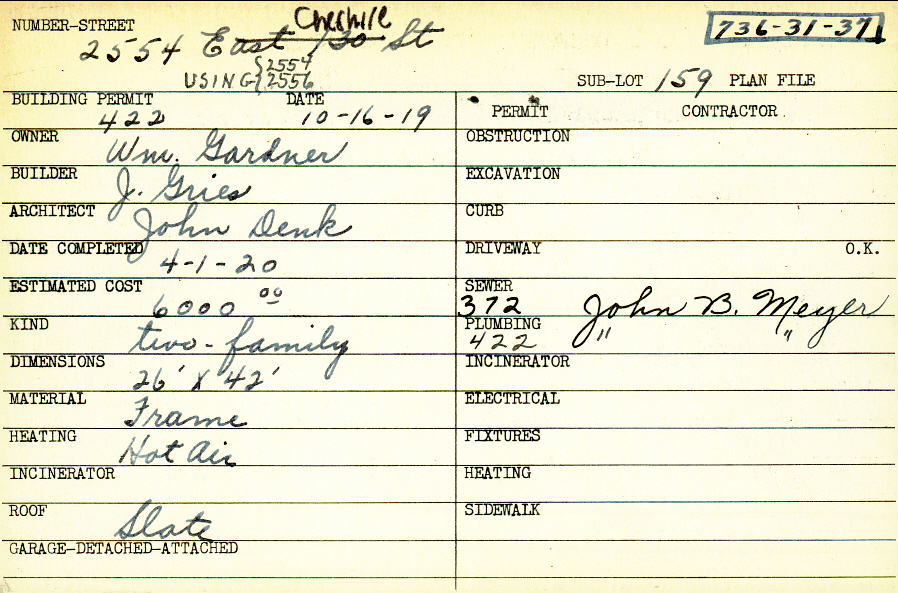 NUMBER-STREET
Cheshire
2554 East 130 St
736-31-37
USING {2554
{2556
SUB-LOT 159 PLAN FILE
BUILDING PERMIT DATE
422 10-16-19
OWNER
Wm. Gardner
BUILDER
J. Gries
ARCHITECT
John Denk
DATE COMPLETED
4-1-20
ESTIMATED COST
6000 00
KIND
two-family
DIMENSIONS
26' X 42'
MATERIAL
Frame
HEATING
Hot Air
INCINERATOR
ROOF
Slate
GARAGE-DETACHED-ATTACHED
PERMIT CONTRACTOR
OBSTRUCTION
EXCAVATION
CURB
DRIVEWAY O.K.
SEWER
372 John B. Meyer
PLUMBING
422 " "
INCINERATOR
ELECTRICAL
FIXTURES
HEATING
SIDEWALK